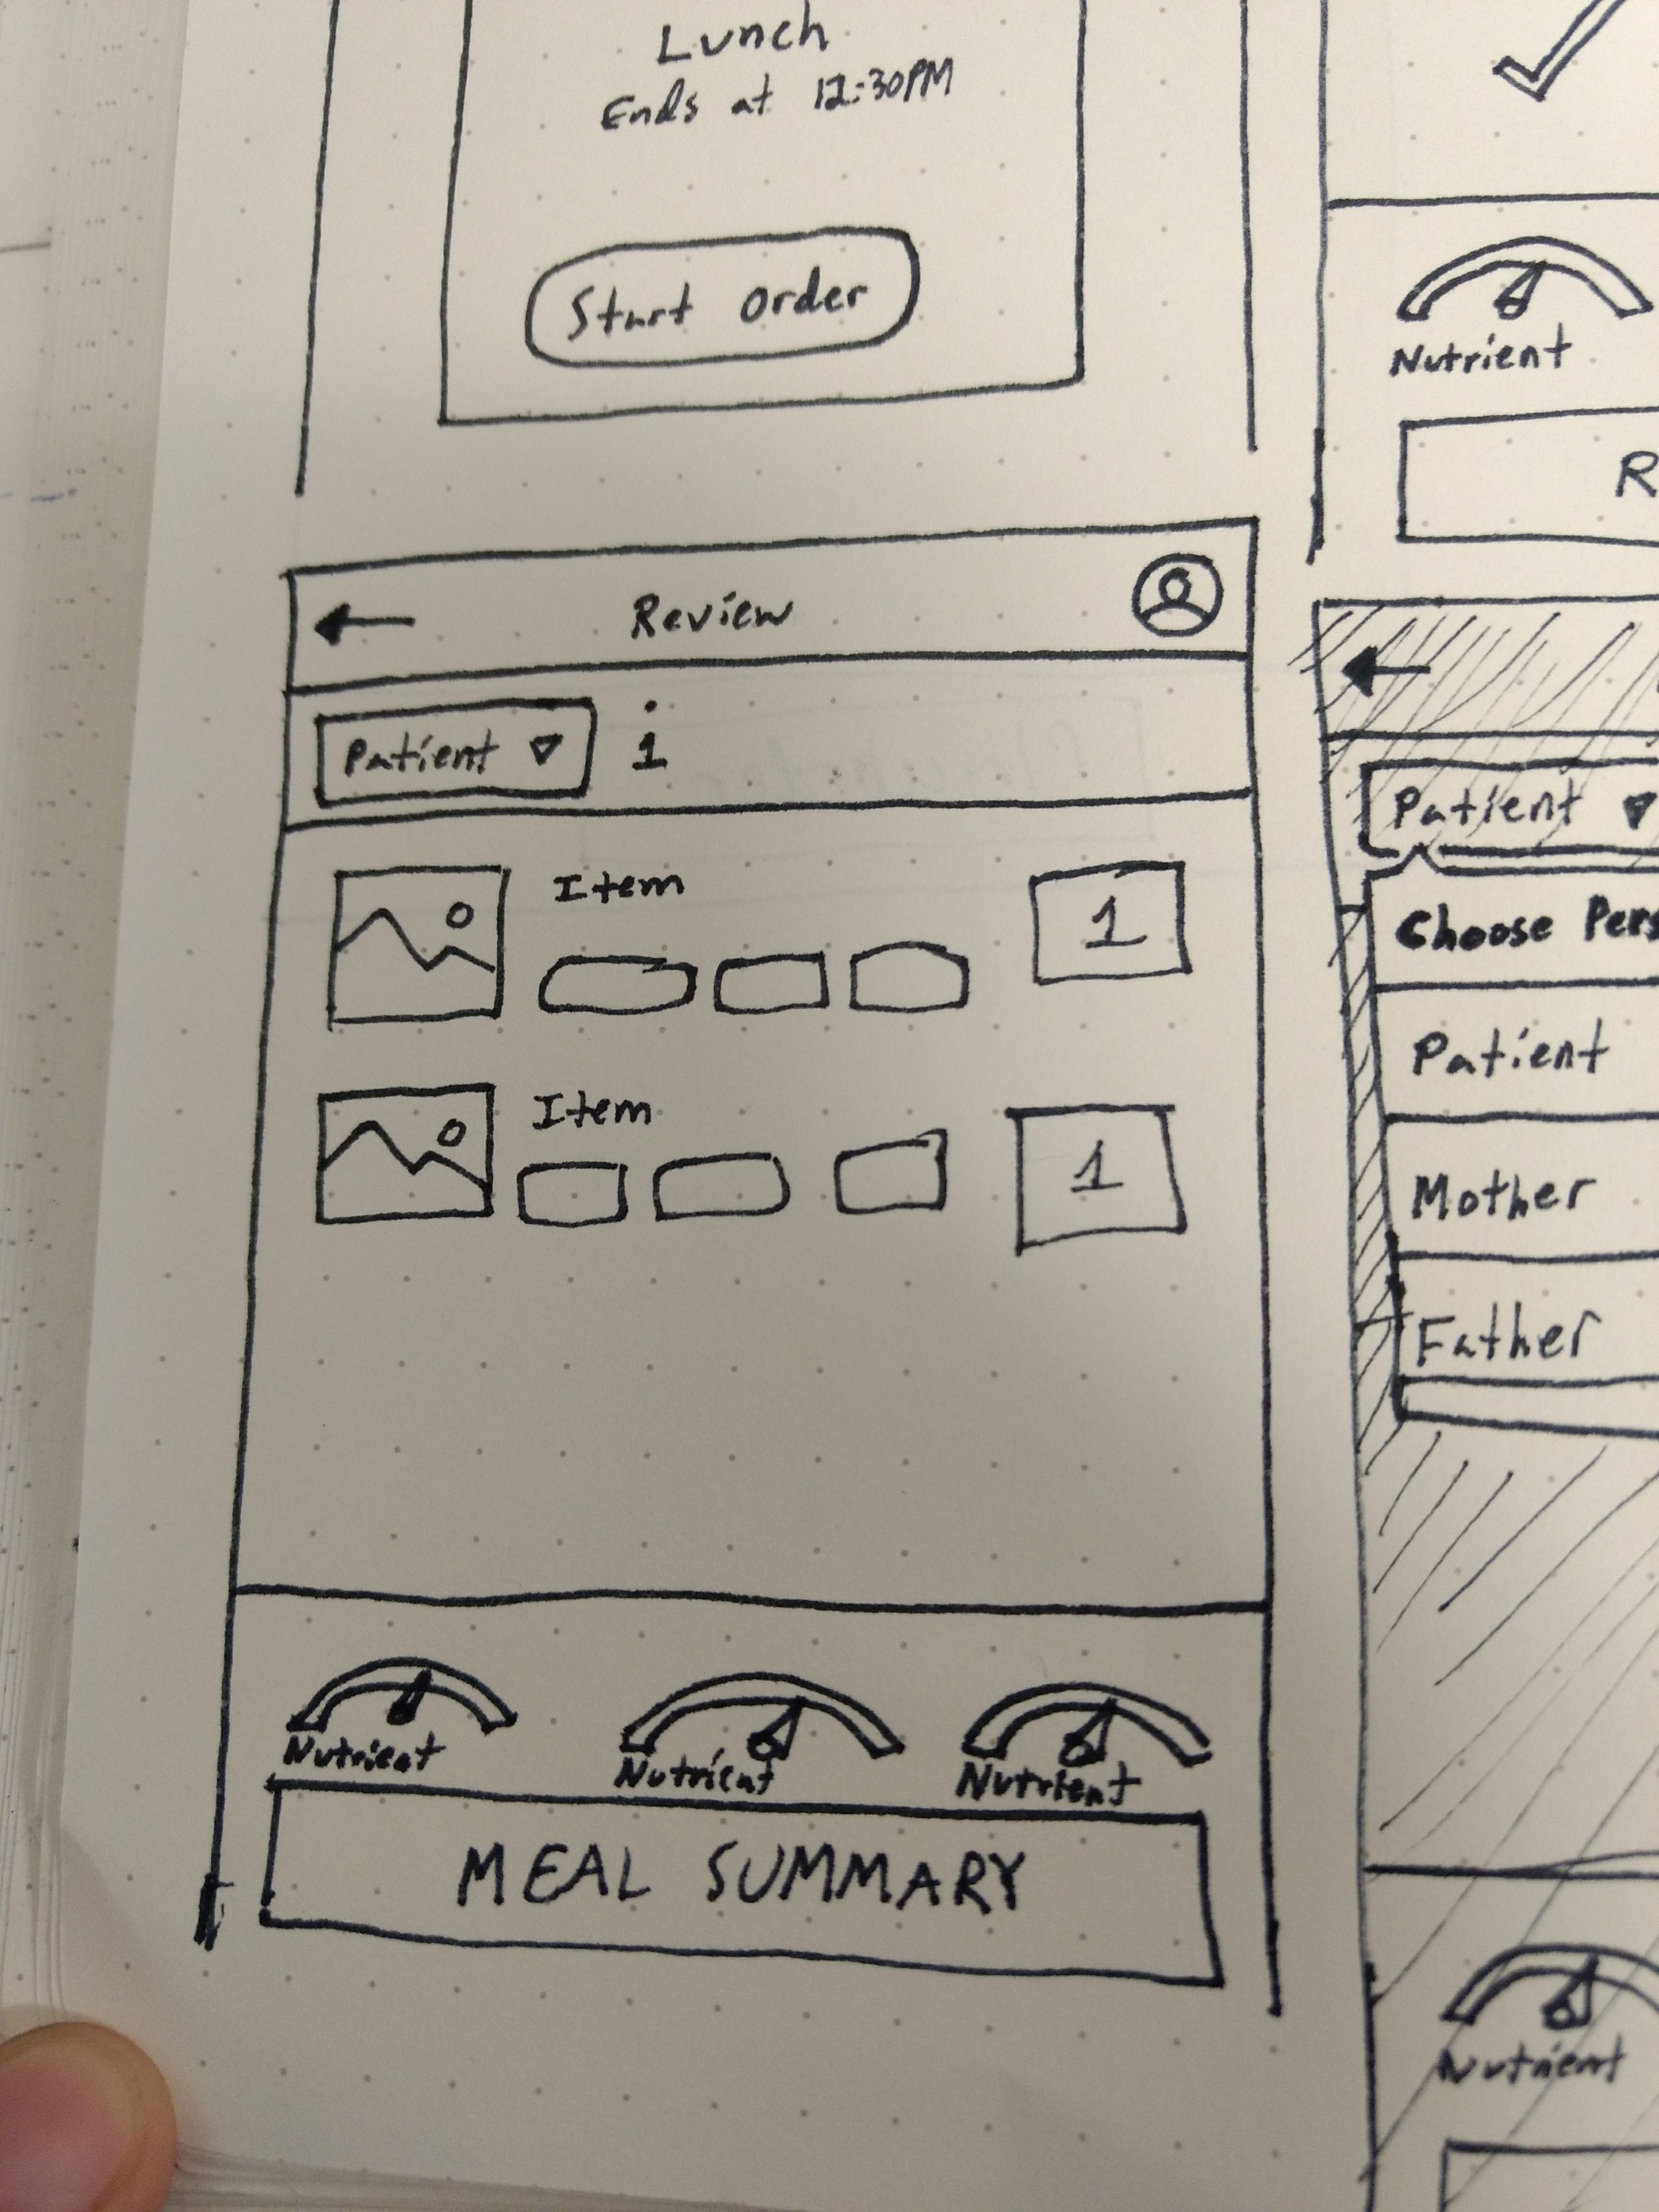 Lunch
Ends at 12:30PM
Start Order
Review
Patient
i
Item
1
Item
1
Nutrient
Nutrient
Nutrient
MEAL SUMMARY
Nutrient
R
Patient
Choose Pers
Patient
Mother
Father
Nutrient